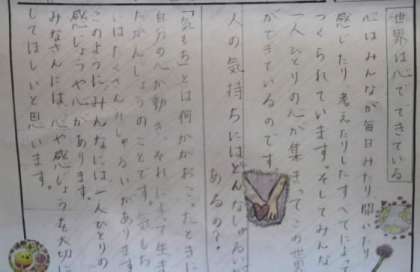 世界は心でできている
心はみんなが毎日みたり聞いたり
感じたり考えたりしたすべてによっ
つくられています。そしてみんな
一人ひとりの心が集まってこの世界
ができているのです。
人の気持ちにはどんなしゅるい
あるの?
「気もち」とは何かがおこったときに
自分の心が動き、それによって生ま
たかんじょうのことです。気もち
いはたくさんのしゅるいがあります
このように、みんなには一人ひとりの
感じょうや心があります。
みなさんには、心や感じょうを大切に
してほしいと思います。